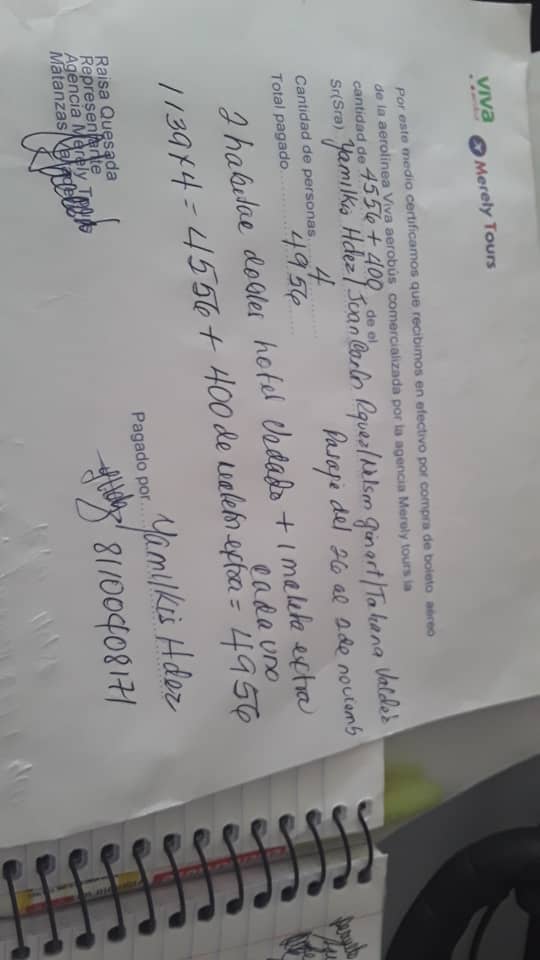 viva
Merely Tours
Por este medio certificamos que recibimos en efectivo por compra de boleto aéreo
de la aerolinea Viva aerobús comercializada por la agencia Merely tours la
cantidad de 4556 + 400 de el
Sr(Sra) Yamilkis Hdez/Juan Carlos Rguez/Nelson Ginart/Tahana Valdés
Pasaje del 26 al 2 de noviemb
Cantidad de personas 4
Total pagado 4956
2 habitac dobles hotel Vedado + 1 maleta extra
cada uno
1139 x 4 = 4556 + 400 de maleta extra = 4956
Pagado por Yamilkis Hdez
81100408171
Raisa Quesada
Representante
Agencia Merely Tours
Matanzas